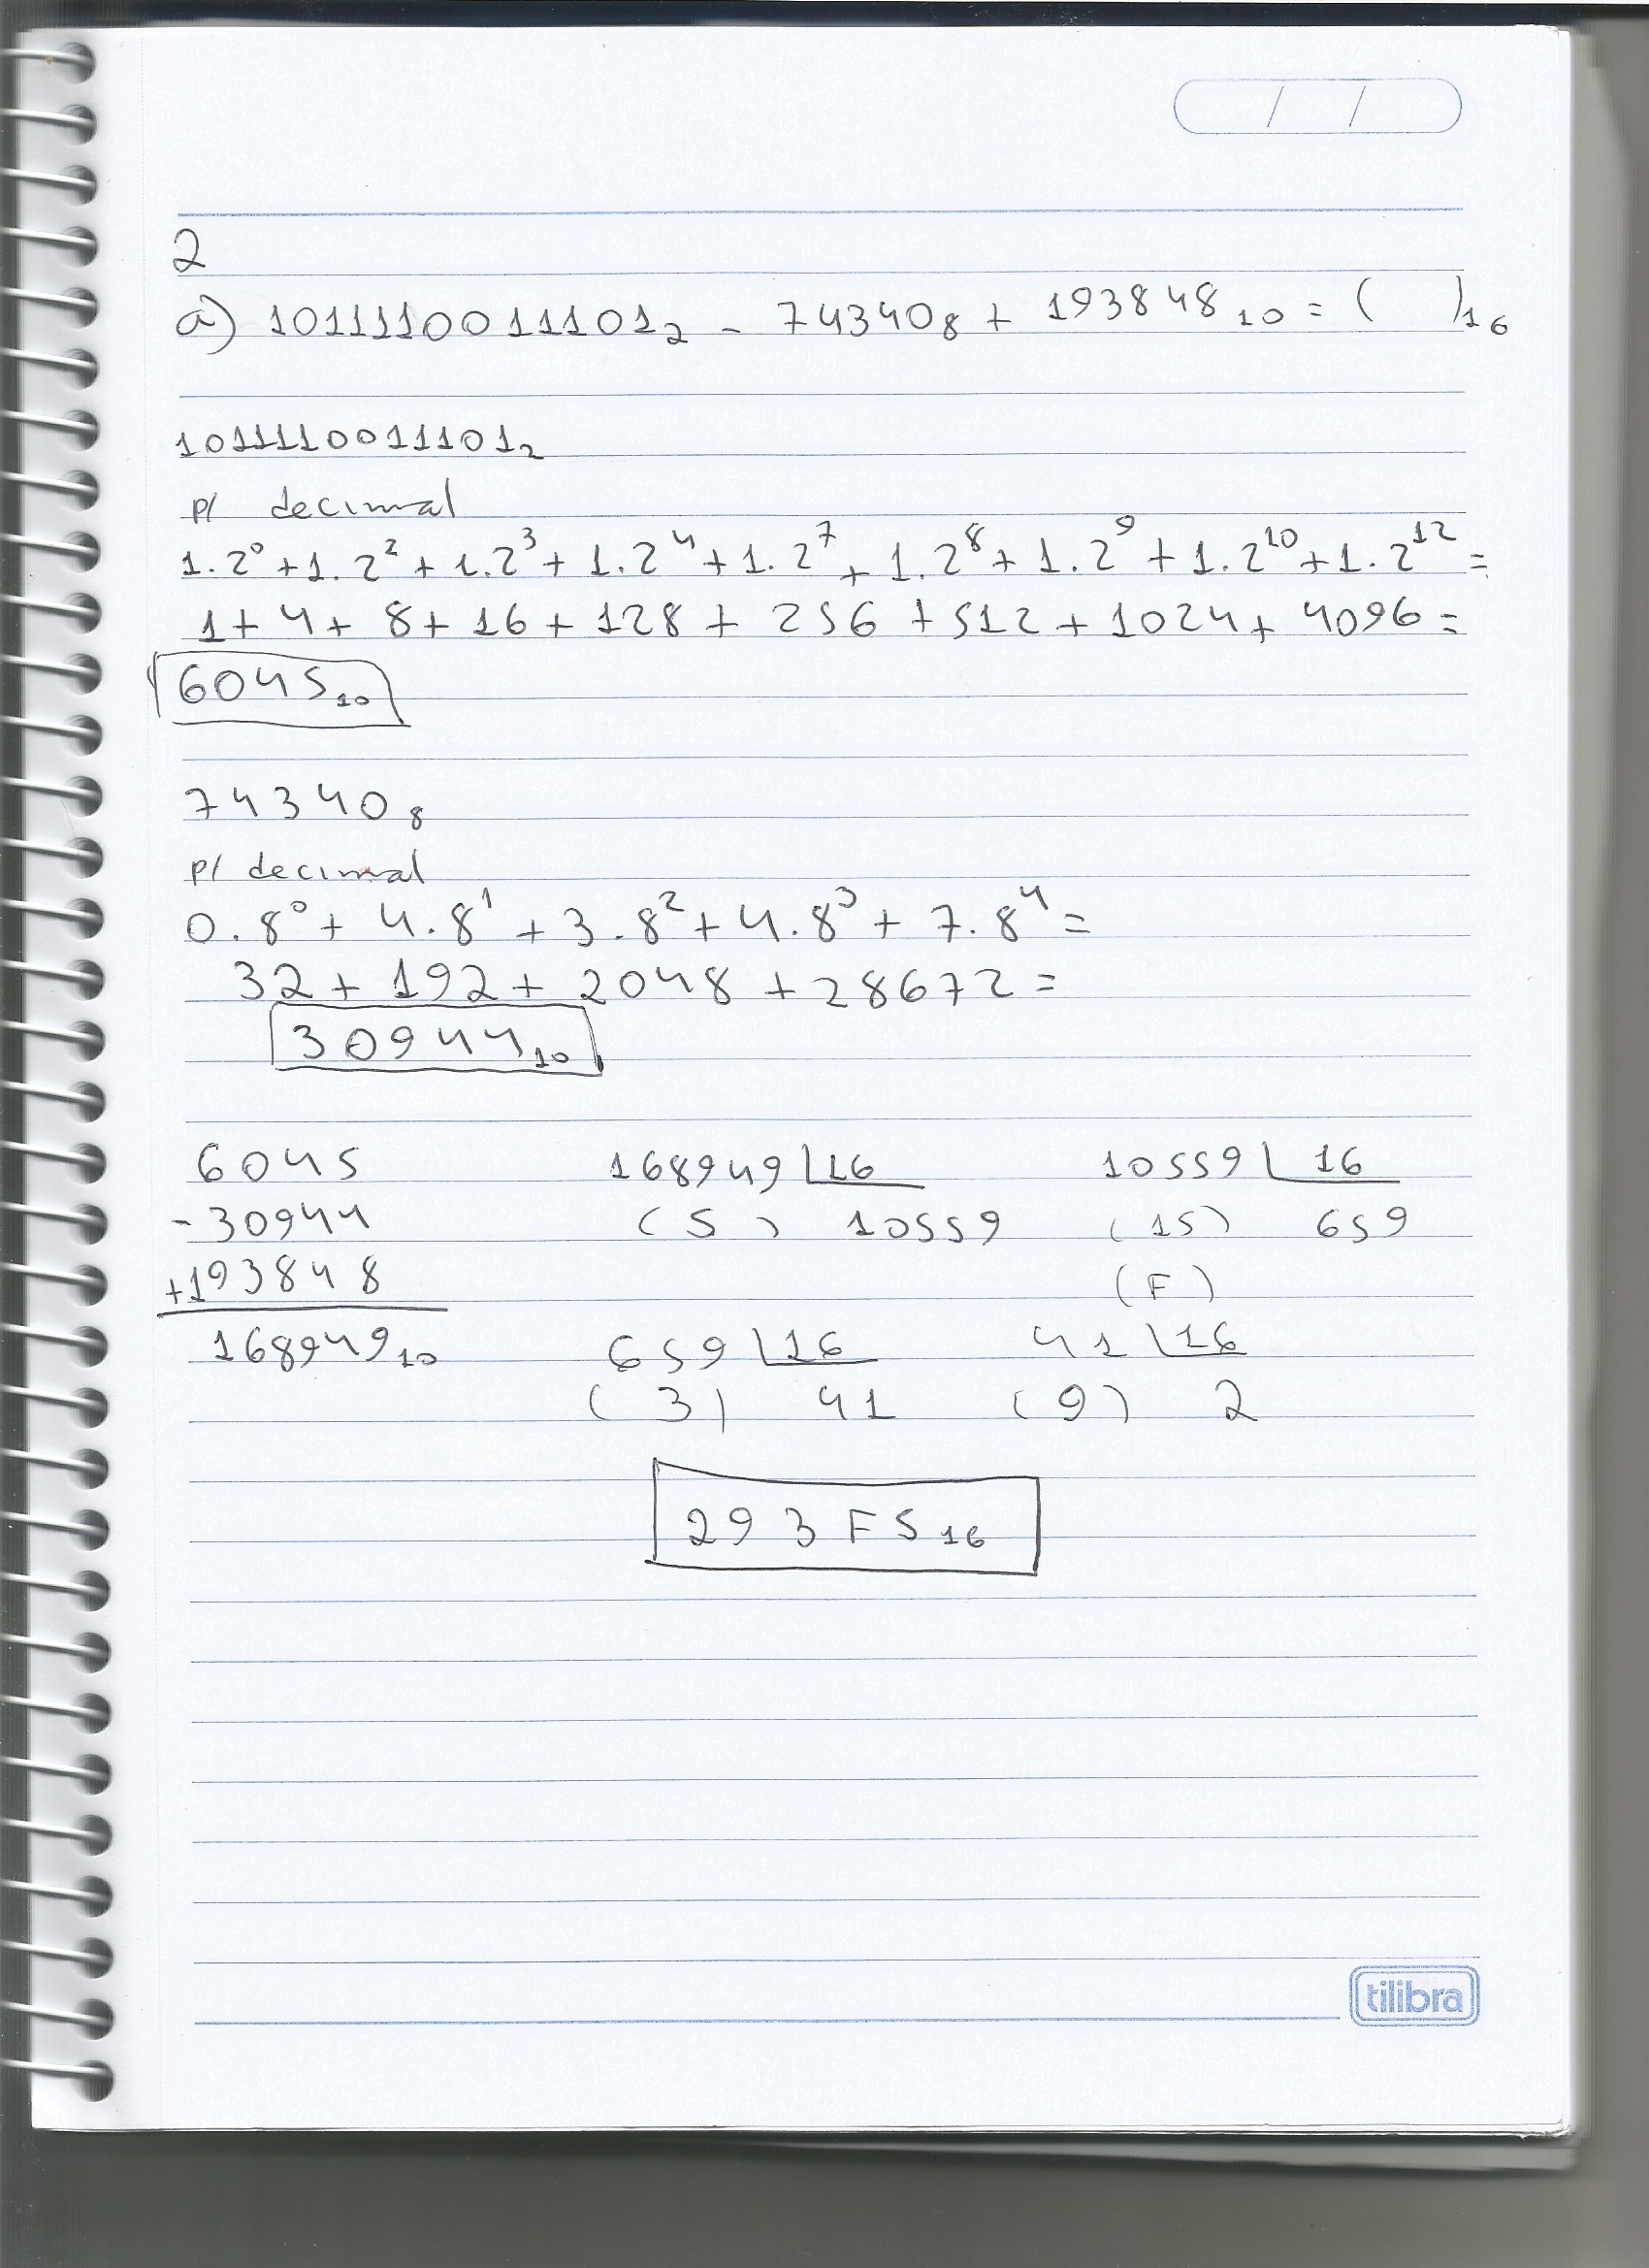 / /
2
a) 1011110011101₂ - 74340₈ + 193848₁₀ = ( )₁₆
1011110011101₂
p/ decimal
1.2⁰ + 1.2² + 1.2³ + 1.2⁴ + 1.2⁷ + 1.2⁸ + 1.2⁹ + 1.2¹⁰ + 1.2¹² =
1 + 4 + 8 + 16 + 128 + 256 + 512 + 1024 + 4096 =
6045₁₀
74340₈
p/ decimal
0.8⁰ + 4.8¹ + 3.8² + 4.8³ + 7.8⁴ =
32 + 192 + 2048 + 28672 =
30944₁₀
6045 168949 |16 10559 |16
-30944 (5) 10559 (15) 659
+193848 (F)
168949₁₀ 659 |16 41 |16
(3) 41 (9) 2
293F5₁₆
tilibra